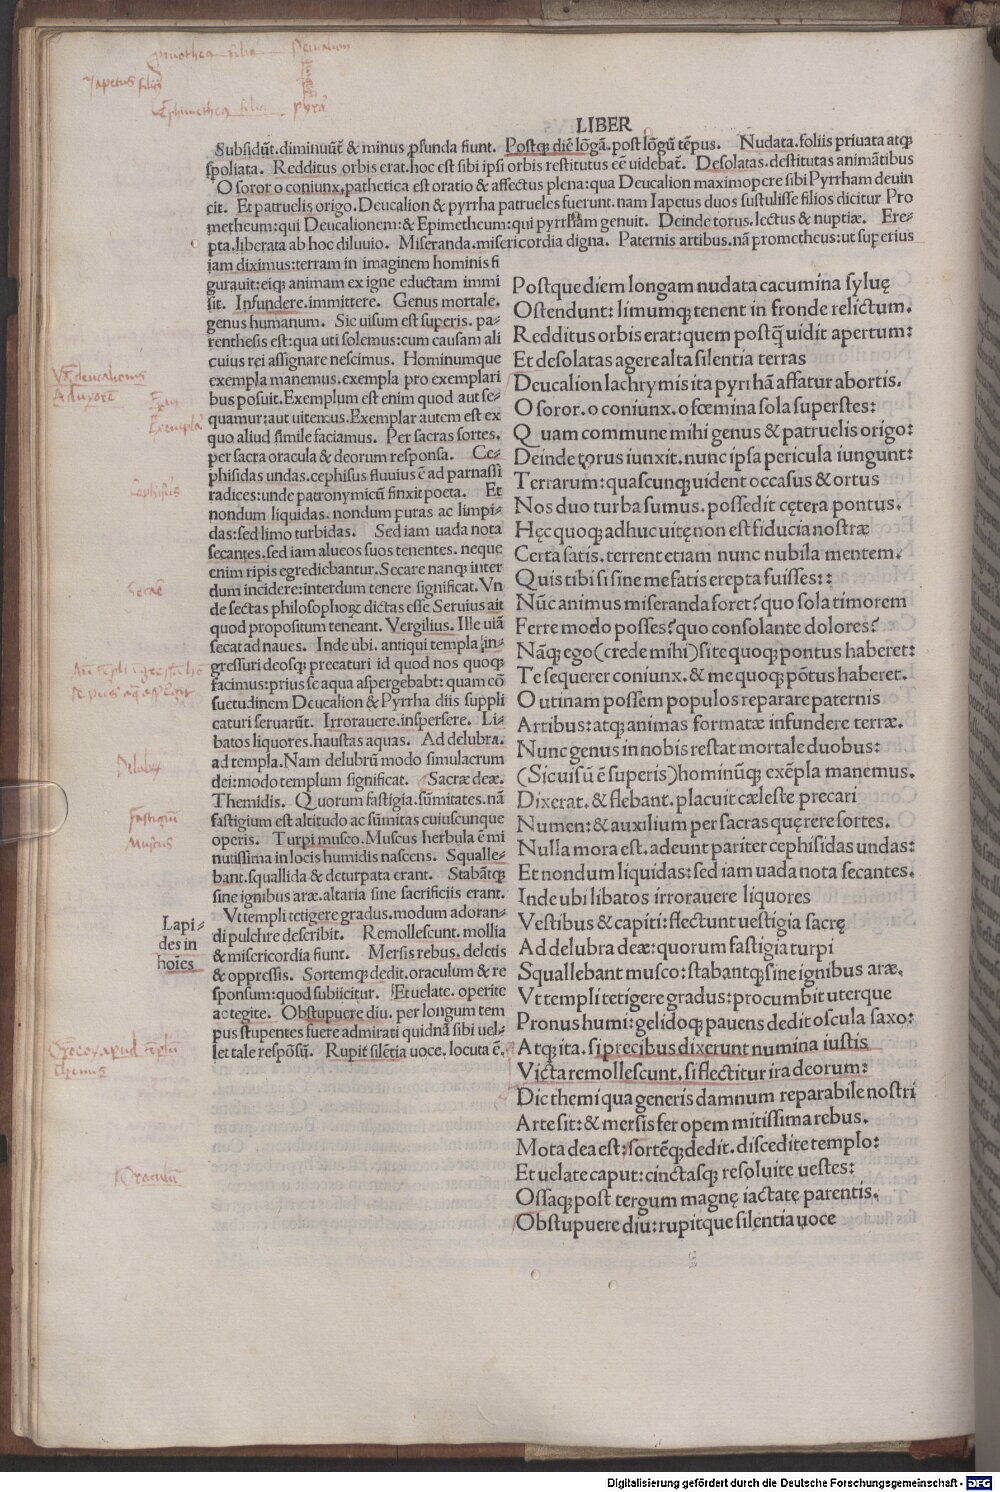 Deucalion
Iapetus filii
Ephimethea filia
pyrá
LIBER
Subsidūt.diminuūt̄ & minus ꝓfunda fiunt. Postqȝ diē lōgā.post lōgū tēpus. Nudata.foliis priuata atqȝ
spoliata. Redditus orbis erat.hoc est sibi ipsi orbis restitutus eē uidebat̄. Desolatas.destitutas animātibus
O soror o coniunx.pathetica est oratio & affectus plena:qua Deucalion maximopere sibi Pyrrham deuin
cit. Et patruelis origo.Deucalion & pyrrha patrueles fuerunt.nam Iapetus duos sustulisse filios dicitur Pro
metheum:qui Deucalionem:& Epimetheum:qui pyrrham genuit. Deinde torus.lectus & nuptiæ. Ere-
pta.liberata ab hoc diluuio. Miseranda.misericordia digna. Paternis artibus.nā prometheus:ut superius
iam diximus:terram in imaginem hominis fi
gurauit:eiqȝ animam ex igne eductam immi
sit. Infundere.immittere. Genus mortale.
genus humanum. Sic uisum est superis. pa-
renthesis est:qua uti solemus:cum causam ali
cuius rei assignare nescimus. Hominumque
exempla manemus.exempla pro exemplari
bus posuit.Exemplum est enim quod aut se-
quamur:aut uitemus.Exemplar autem est ex
quo aliud simile faciamus. Per sacras sortes.
per sacra oracula & deorum responsa. Ce-
phisidas undas.cephisus fluuius ē ad parnassi
radices:unde patronymicū finxit poeta. Et
nondum liquidas.nondum puras ac limpi-
das:sed limo turbidas. Sed iam uada nota
secantes.sed iam alueos suos tenentes. neque
enim ripis egrediebantur.Secare nanqȝ inter
dum incidere:interdum tenere significat. Vn
de sectas philosophoꝝ dictas esse Seruius ait
quod propositum teneant. Vergilius. Ille uiā
secat ad naues. Inde ubi. antiqui templa in-
gressuri deosqȝ precaturi id quod nos quoqȝ
facimus:prius se aqua aspergebābt:quam cō
suetudinem Deucalion & Pyrrha diis suppli
caturi seruarūt. Irrorauere.inspersere. Li-
batos liquores.haustas aquas. Ad delubra.
ad templa.Nam delubrū modo simulacrum
dei:modo templum significat. Sacræ deæ.
Themidis. Quorum fastigia.sūmitates.nā
fastigium est altitudo ac sūmitas cuiuscunque
operis. Turpi musco.Muscus herbula ē mi
nutissima in locis humidis nascens. Squalle-
bant.squallida & deturpata erant. Stabātqȝ
sine ignibus aræ.altaria sine sacrificiis erant.
Vt templi tetigere gradus.modum adoran-
di pulchre describit. Remollescunt.mollia
& misericordia fiunt. Mersis rebus.deletis
& oppressis. Sortemqȝ dedit.oraculum & re
sponsum:quod subiicitur. Et uelate. operite
ac tegite. Obstupuere diu. per longum tem
pus stupentes fuere admirati quidnā sibi uel-
let tale respōsū. Rupit silētia uoce. locuta ē.
Exempla
Cephisus
Secare
Fastigiū
Muscus
Lapi-
des in
hoīes
Oraculū
Postque diem longam nudata cacumina syluę
Ostendunt: limumqȝ tenent in fronde relictum.
Redditus orbis erat: quem postqȝ̄ uidit apertum:
Et desolatas agere alta silentia terras
Deucalion lachrymis ita pyrrhā affatur abortis.
O soror. o coniunx. o fœmina sola superstes:
Quam commune mihi genus & patruelis origo:
Deinde torus iunxit. nunc ipsa pericula iungunt:
Terrarum: quascunqȝ uident occasus & ortus
Nos duo turba sumus. possedit cętera pontus.
Hęc quoqȝ adhuc uitę non est fiducia nostræ
Certa satis. terrent etiam nunc nubila mentem.
Quis tibi si sine me fatis erepta fuisses::
Nūc animus miseranda foret? quo sola timorem
Ferre modo posses? quo consolante dolores?
Nāqȝ ego (crede mihi) si te quoqȝ pontus haberet:
Te sequerer coniunx. & me quoqȝ pōtus haberet.
O utinam possem populos reparare paternis
Artibus: atqȝ animas formatæ infundere terræ.
Nunc genus in nobis restat mortale duobus:
(Sic uisū ē superis) hominūqȝ exēpla manemus.
Dixerat. & flebant. placuit cæleste precari
Numen: & auxilium per sacras quęrere sortes.
Nulla mora est. adeunt pariter cephisidas undas:
Et nondum liquidas: sed iam uada nota secantes.
Inde ubi libatos irrorauere liquores
Vestibus & capiti: flectunt uestigia sacrę
Ad delubra deæ: quorum fastigia turpi
Squallebant musco: stabantqȝ sine ignibus aræ.
Vt templi tetigere gradus: procumbit uterque
Pronus humi: gelidoqȝ pauens dedit oscula saxo:
Atqȝ ita. si precibus dixerunt numina iustis
Victa remollescunt. si flectitur ira deorum:
Dic themi qua generis damnum reparabile nostri
Arte sit: & mersis fer opem mitissima rebus.
Mota dea est: sortēqȝ dedit. discedite templo:
Et uelate caput: cinctasqȝ resoluite uestes:
Ossaqȝ post tergum magnę iactate parentis.
Obstupuere diu: rupitque silentia uoce
Digitalisierung gefördert durch die Deutsche Forschungsgemeinschaft - DFG